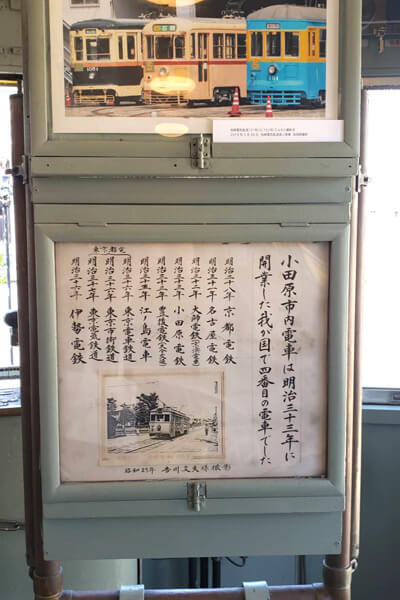 小田原市内電車は明治三十三年に
開業した我が国で四番目の電車でした
明治二十八年 京都電鉄
明治三十一年 名古屋電鉄
明治三十二年 大師電鉄(京浜急行)
明治三十三年 小田原電鉄
明治三十三年 豊後電鉄(大分交通)
明治三十五年 江ノ島電車
東京都電
明治三十六年 東京電車鉄道
明治三十六年 東京市街鉄道
明治三十七年 東京電気鉄道
明治三十六年 伊勢電鉄
吉川文夫様撮影